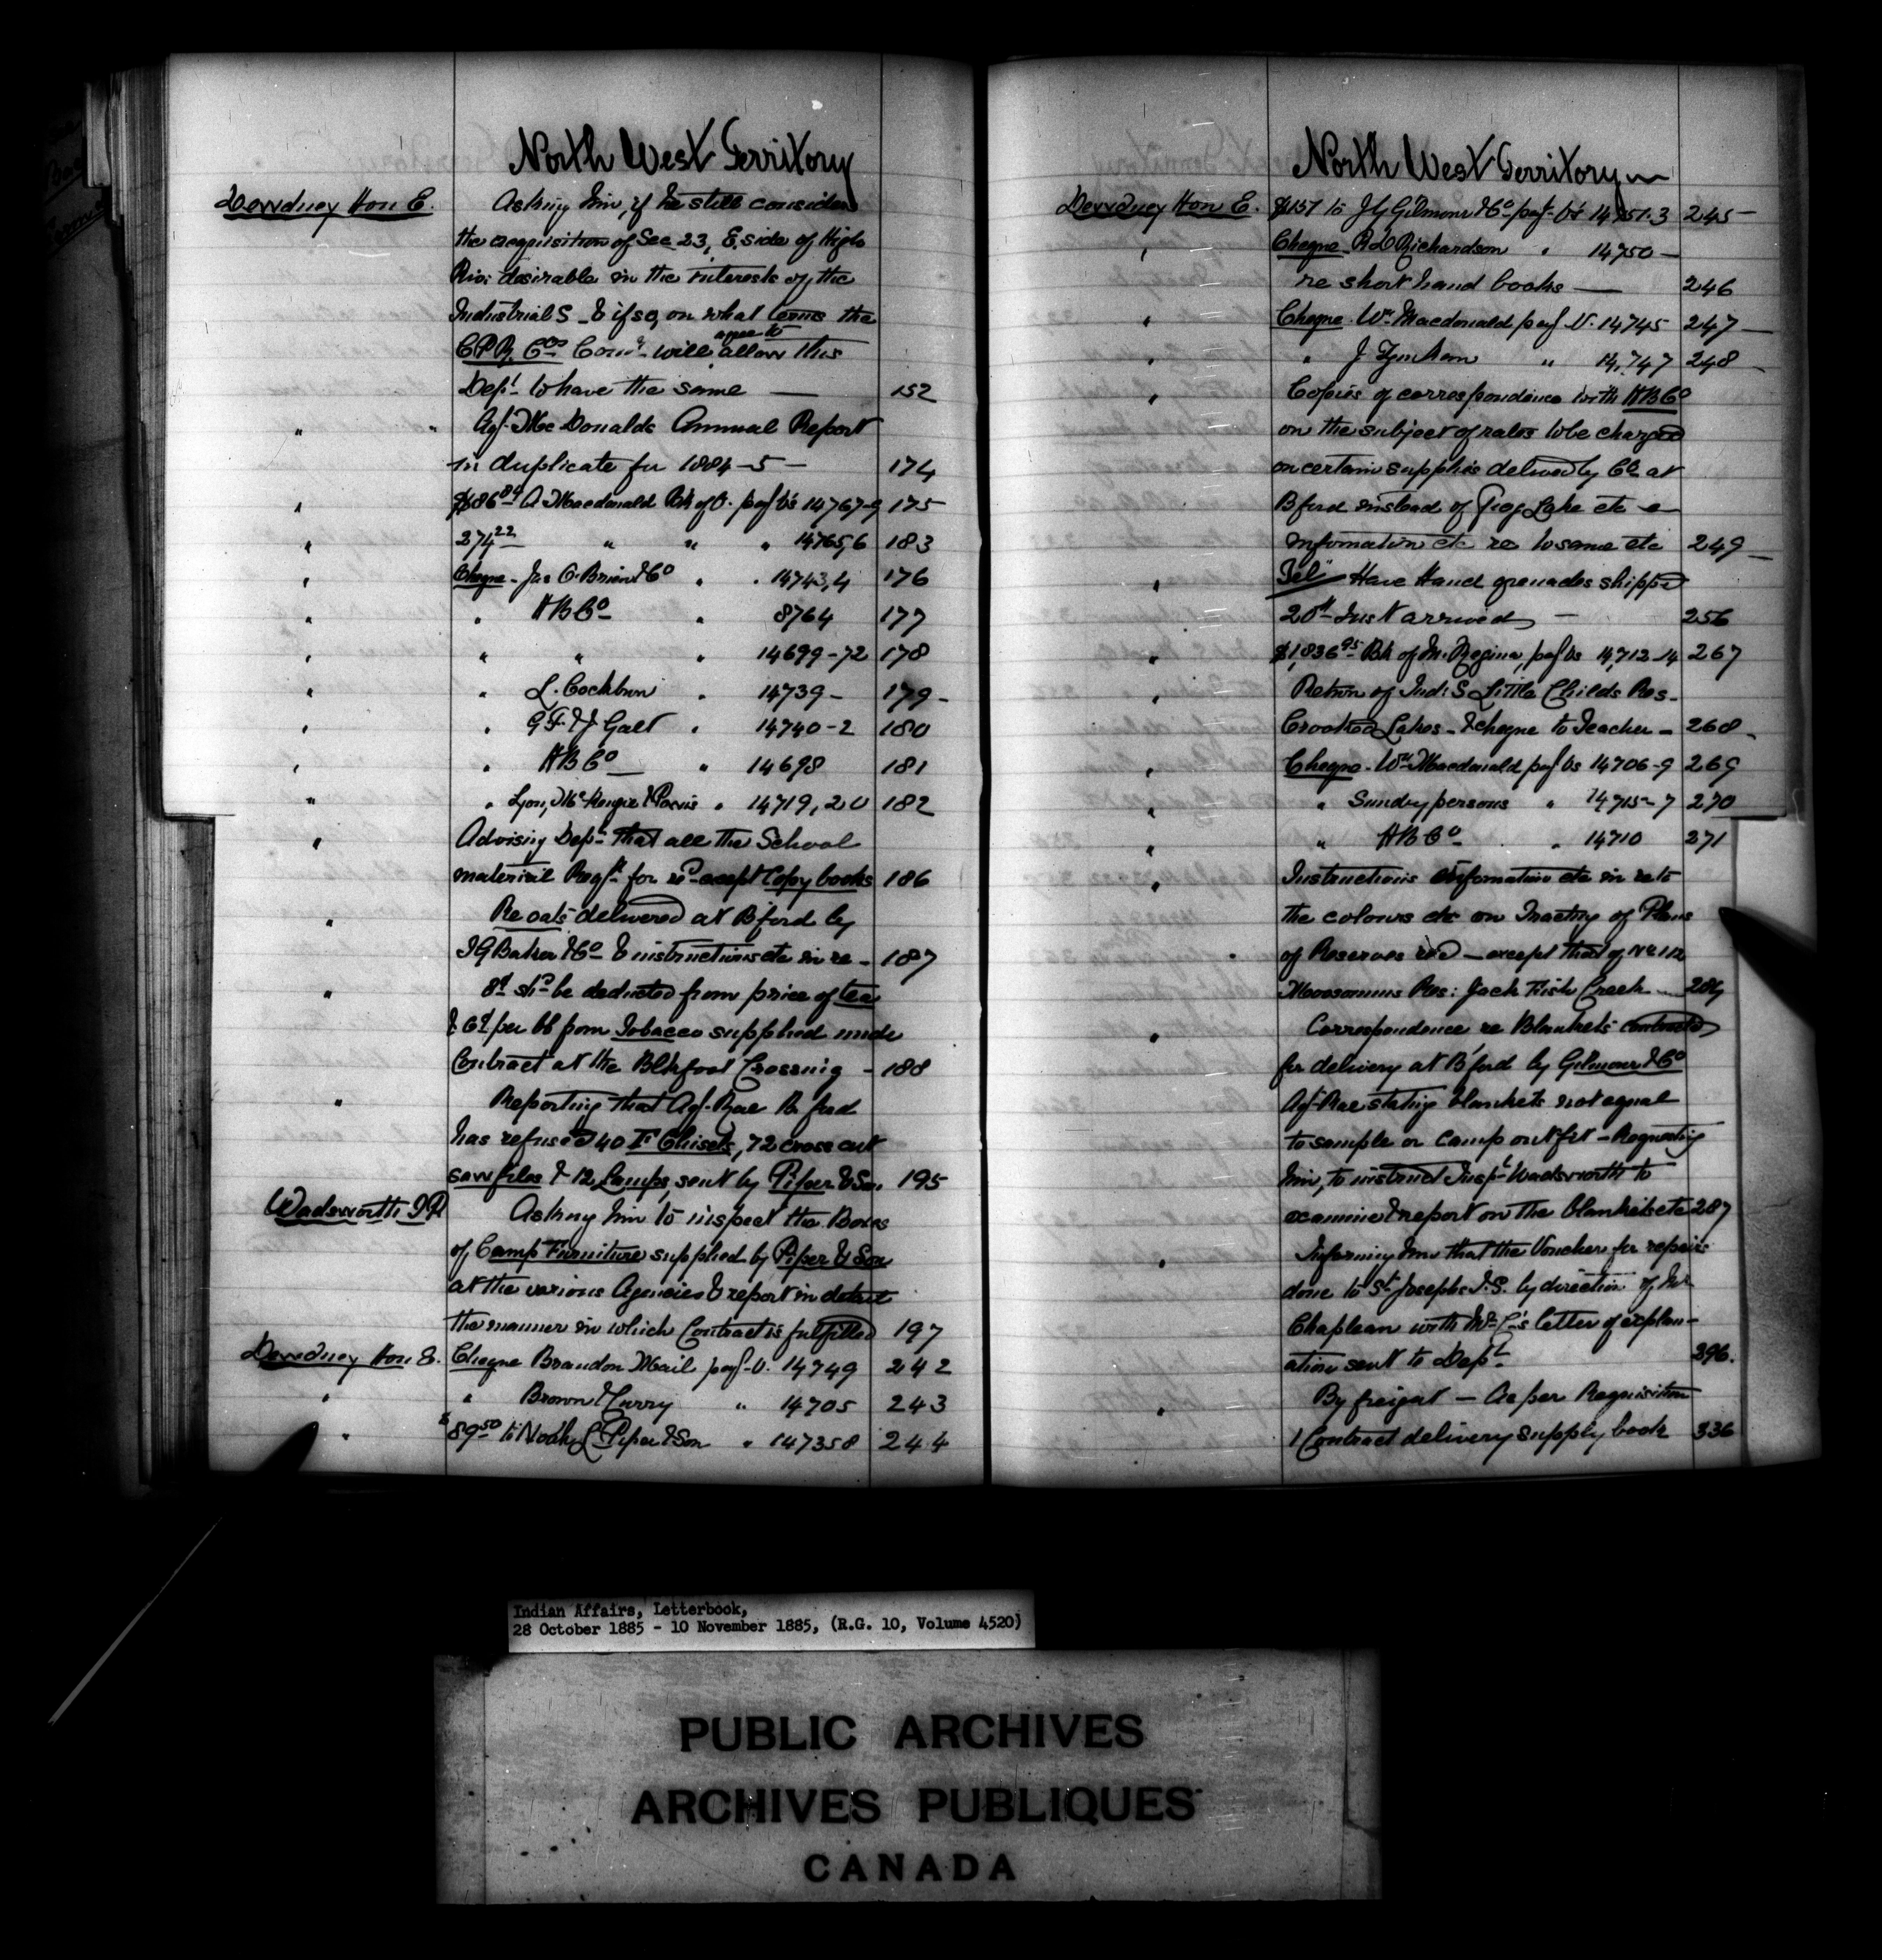 North West Territory
Dewdney Hon E. Asking him, if he still considers
the acquisition of Sec 23, E. side of High
River desirable in the interests of the
Industrial S & if so, on what terms the
C.P.R. Cos Comr will agree to allow this
Dept to have the same — 152
" " Agt McDonalds Annual Report
in duplicate for 1884-5 — 174
" $686 A Macdonald Bk of O. payt Vs 14767-9 175
" 274.22 " " " 14765,6 183
" Cheque - Jas O'Brien & Co " . 14743,4 176
" " H B Co " 8764 177
" " " " 14699-72 178
" " L. Cockburn " 14739 - 179 -
" " G F & J Galt " 14740-2 180
" " H B Co " 14698 181
" " Lyon, McKenzie & Powis " 14719, 20 182
" Advising Dept that all the School
material Reqd for recd except Copy books 186
" Re oats delivered at B'ford by
I G Baker & Co & instructions etc in re - 187
" 8d shd be deducted from price of tea
& 6d per lb from Tobacco supplied under
Contract at the Blkfoot Crossing - 188
" Reporting that Agt Rae B ford
has refused 40 F Chisels, 72 cross cut
saw files & 12 Lamps, sent by Piper & Son 195
Wadsworth T P Asking him to inspect the Boxes
of Camp Furniture supplied by Piper & Son
at the various Agencies & report in detail
the manner in which Contract is fulfilled 197
Dewdney Hon E. Cheque Brandon Mail payt V. 14749 242
" " Brown & Curry " 14705 243
" $89.50 to Noah L Piper & Son " 147358 244
North West Territory
Dewdney Hon E. $157 to J Y Gilmour & Co payt Vs 14,751.3 245 —
" Cheque R D Richardson " 14750 —
re short hand books — 246
" Cheque Wm Macdonald payt V. 14745 247 —
" " J " 14,747 248 —
" Copies of correspondence with H B Co
on the subject of rates to be charged
on certain supplies delived by Co at
B ford instead of Frog Lake etc &
information etc re to same etc 249 —
" Tel Have Hand grenades shipped
20th Inst arrived — 256
" $1,836.95 Bk of M. Regina, payt Vs 14,712-14 267
" Return of Ind: S Little Childs Res -
Crooked Lakes - & cheque to Teacher - 268 -
" Cheque - Wm Macdonald payt Vs 14706-9 269
" " Sundry persons " 14715-7 270
" " H B Co " 14710 271
" Instructions information etc in re to
the colours etc on Tracing of Plans
of Reserves recd — except that of No 112
Moosomins Res: Jack Fish Creek — 284
" Correspondence re Blankets contracted
for delivery at B'ford by Gilmour & Co
Agt Rae stating blankets not equal
to sample or camp outfit - Requesting
him, to instruct Inspr Wadsworth to
examine & report on the blankets etc 287
" Informing him that the Voucher for repairs
done to St Josephs I.S. by direction of Mr
Chapleau with Mr C's letter of explan-
ation sent to Dept 296.
" By freight — As per Requisition
1 Contract delivery supply book 336
Indian Affairs, Letterbook,
28 October 1885 - 10 November 1885, (R.G. 10, Volume 4520)
PUBLIC ARCHIVES
ARCHIVES PUBLIQUES
CANADA